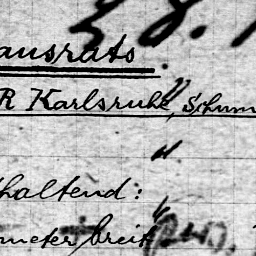 28.
ausrats.
R Karlsruhe, Schum
".
haltend:
meter breit